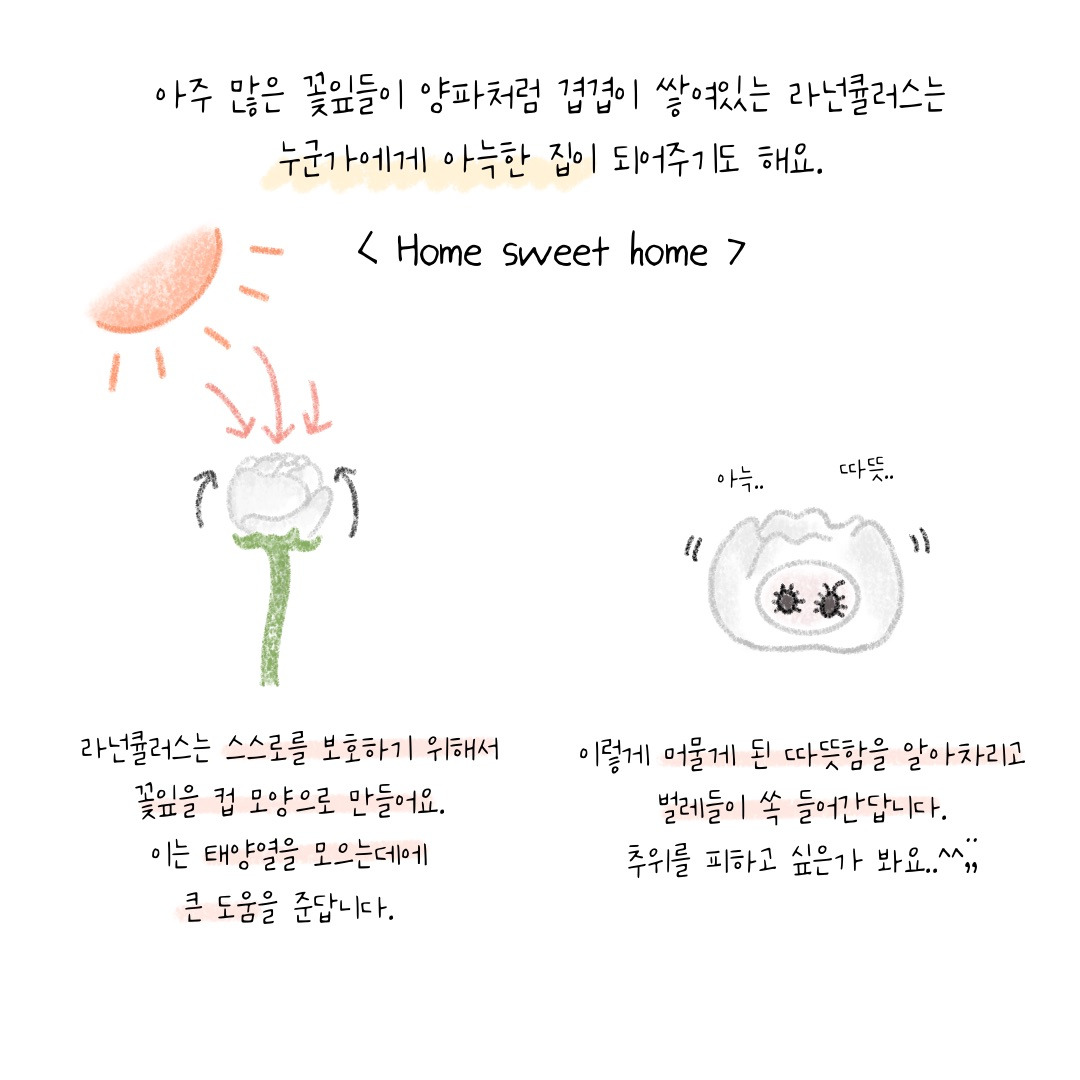 아주 많은 꽃잎들이 양파처럼 겹겹이 쌓여있는 라넌큘러스는
누군가에게 아늑한 집이 되어주기도 해요.
< Home sweet home >
아늑.. 따뜻..
라넌큘러스는 스스로를 보호하기 위해서
꽃잎을 컵 모양으로 만들어요.
이는 태양열을 모으는데에
큰 도움을 준답니다.
이렇게 머물게 된 따뜻함을 알아차리고
벌레들이 쏙 들어간답니다.
추위를 피하고 싶은가 봐요..^^;;